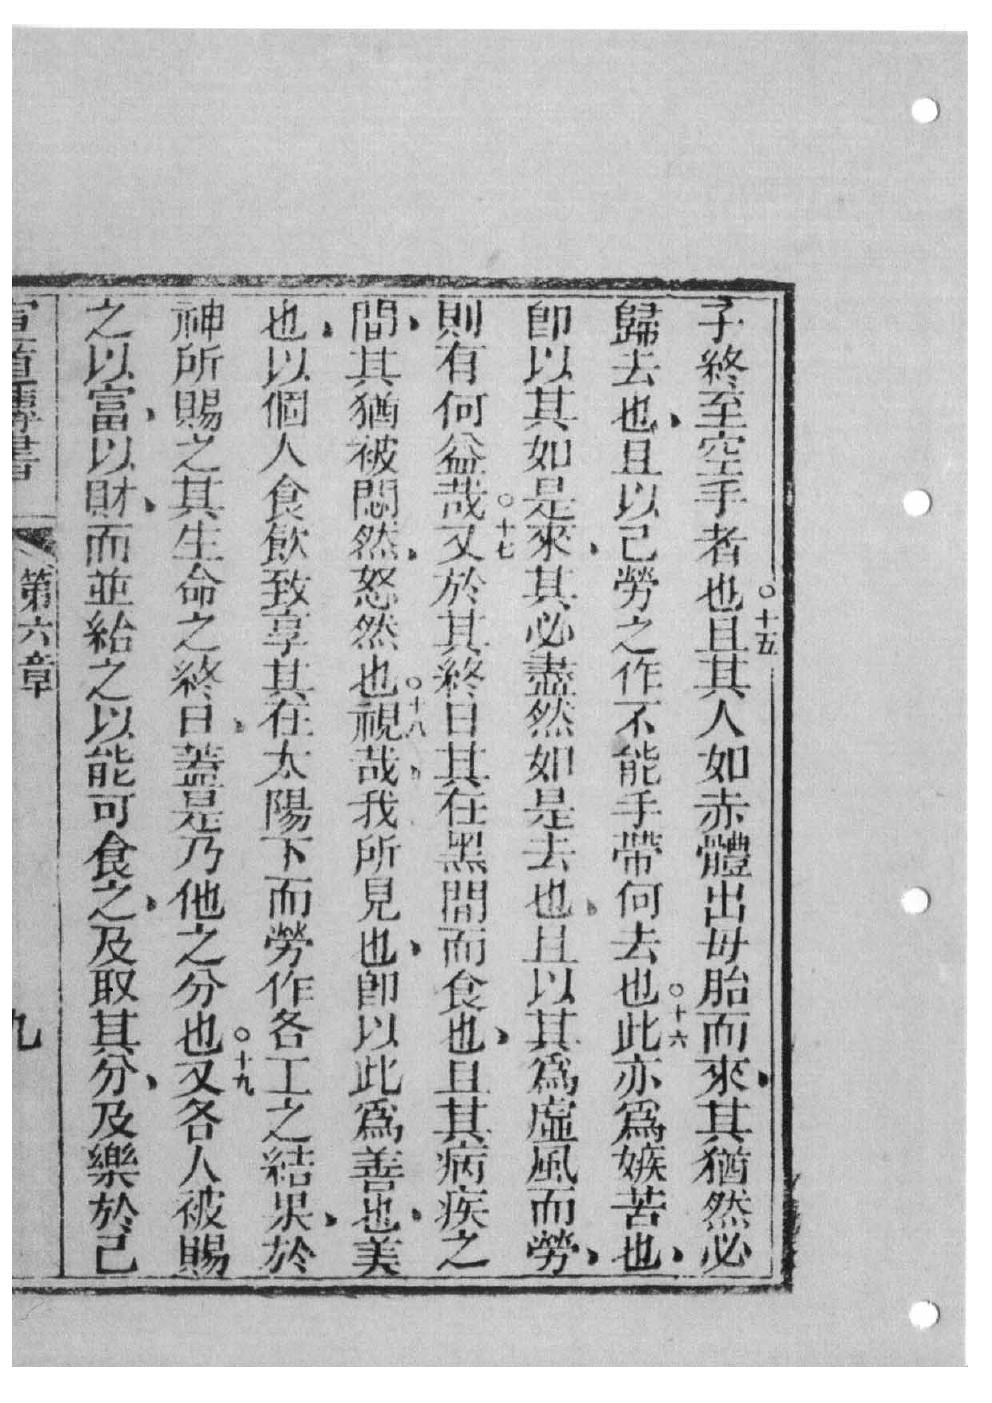 子終至空手者也○十五且其人如赤體出母胎而來、其猶然必
歸去也、且以己勞之作不能手帶何去也○十六此亦爲嫉苦也、
卽以其如是來、其必盡然如是去也、且以其爲虛風而勞、
則有何益哉○十七又於其終日其在黑間而食也、且其病疾之
間、其猶被悶然、怒然也○十八視哉我所見也、卽以此爲善也、美
也、以個人食飲致享其在太陽下而勞作各工之結果、於
神所賜之其生命之終日、蓋是乃他之分也○十九又各人被賜
之以富、以財、而並給之以能可食之、及取其分、及樂於己
宣道傳書 第六章 九